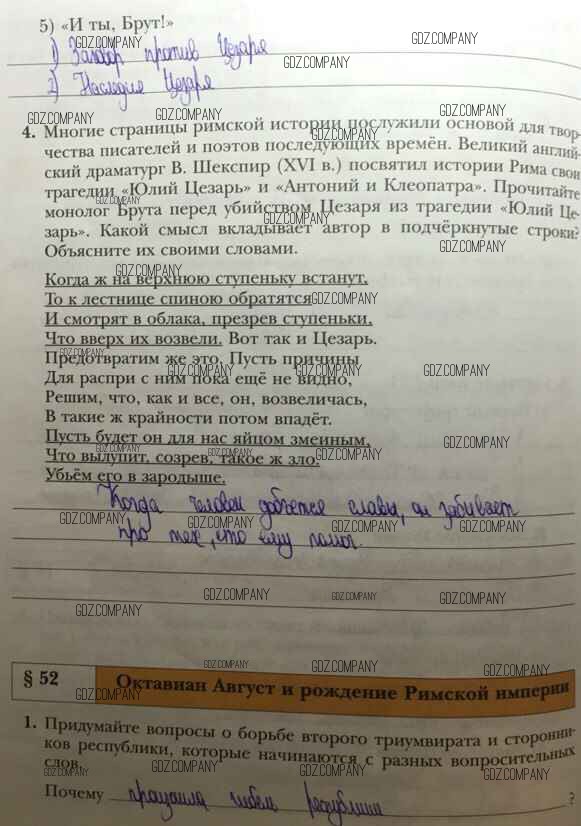 5) «И ты, Брут!»
1) Заговор против Цезаря
2) Наследие Цезаря
4. Многие страницы римской истории послужили основой для твор-
чества писателей и поэтов последующих времён. Великий англий-
ский драматург В. Шекспир (XVI в.) посвятил истории Рима свои
трагедии «Юлий Цезарь» и «Антоний и Клеопатра». Прочитайте
монолог Брута перед убийством Цезаря из трагедии «Юлий Це-
зарь». Какой смысл вкладывает автор в подчёркнутые строки?
Объясните их своими словами.
Когда ж на верхнюю ступеньку встанут,
То к лестнице спиною обратятся
И смотрят в облака, презрев ступеньки,
Что вверх их возвели. Вот так и Цезарь.
Предотвратим же это. Пусть причины
Для распри с ним пока ещё не видно,
Решим, что, как и все, он, возвеличась,
В такие ж крайности потом впадёт.
Пусть будет он для нас яйцом змеиным,
Что вылупит, созрев, такое ж зло.
Убьём его в зародыше.
Когда человек добьется славы, он забывает
про тех, кто ему помог.
§ 52 Октавиан Август и рождение Римской империи
1. Придумайте вопросы о борьбе второго триумвирата и сторонни-
ков республики, которые начинаются с разных вопросительных
слов.
Почему произошла гибель республики ?
GDZ.COMPANY